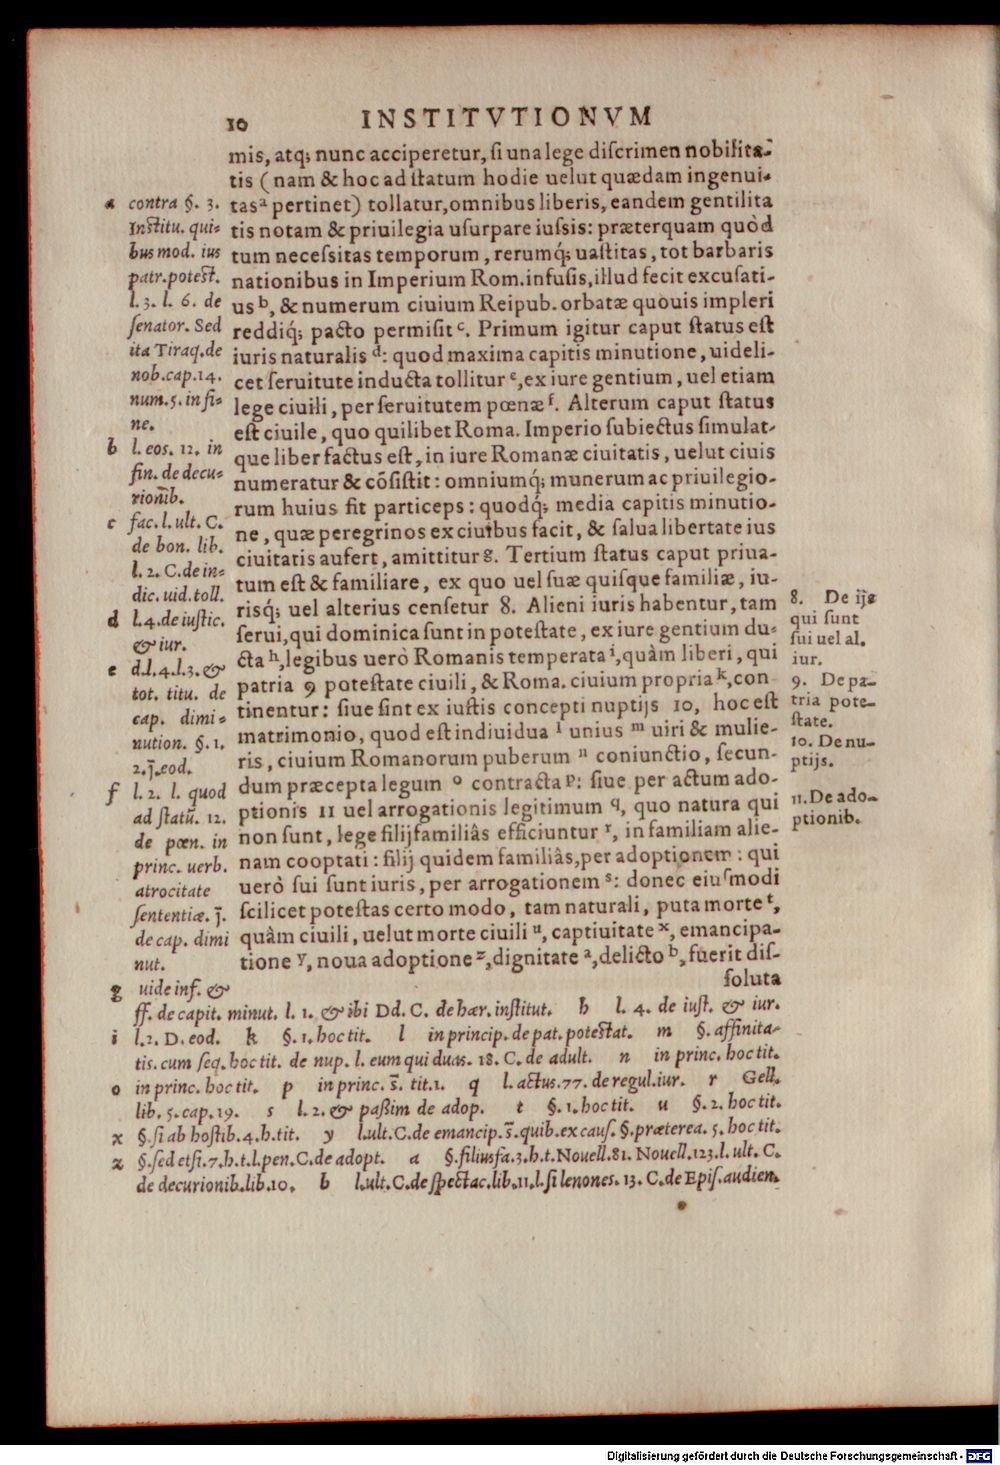 10 INSTITVTIONVM
mis, atq; nunc acciperetur, ſi una lege diſcrimen nobilita-
tis (nam & hoc ad ſtatum hodie uelut quædam ingenui-
tas a pertinet) tollatur, omnibus liberis, eandem gentilita
tis notam & priuilegia uſurpare iuſsis: præterquam quòd
tum neceſsitas temporum, rerumq́; uaſtitas, tot barbaris
nationibus in Imperium Rom. infuſis, illud fecit excuſati-
us b, & numerum ciuium Reipub. orbatæ quouis impleri
reddiq́; pacto permiſit c. Primum igitur caput ſtatus eſt
iuris naturalis d: quod maxima capitis minutione, uideli-
cet ſeruitute inducta tollitur e, ex iure gentium, uel etiam
lege ciuili, per ſeruitutem pœnæ f. Alterum caput ſtatus
eſt ciuile, quo quilibet Roma. Imperio ſubiectus ſimulat-
que liber factus eſt, in iure Romanæ ciuitatis, uelut ciuis
numeratur & cõſiſtit: omniumq́; munerum ac priuilegio-
rum huius fit particeps: quodq́; media capitis minutio-
ne, quæ peregrinos ex ciuibus facit, & ſalua libertate ius
ciuitatis aufert, amittitur g. Tertium ſtatus caput priua-
tum eſt & familiare, ex quo uel ſuæ quiſque familiæ, iu-
risq́; uel alterius cenſetur 8. Alieni iuris habentur, tam
ſerui, qui dominica ſunt in poteſtate, ex iure gentium du-
cta h, legibus uerò Romanis temperata i, quàm liberi, qui
patria 9 poteſtate ciuili, & Roma. ciuium propria k, con
tinentur: ſiue ſint ex iuſtis concepti nuptijs 10, hoc eſt
matrimonio, quod eſt indiuidua l unius m uiri & mulie-
ris, ciuium Romanorum puberum n coniunctio, ſecun-
dum præcepta legum o contracta p: ſiue per actum ado-
ptionis 11 uel arrogationis legitimum q, quo natura qui
non ſunt, lege filijfamiliâs efficiuntur r, in familiam alie-
nam cooptati: filij quidem familiâs, per adoptionem: qui
uerò ſui ſunt iuris, per arrogationem s: donec eiuſmodi
ſcilicet poteſtas certo modo, tam naturali, puta morte t,
quàm ciuili, uelut morte ciuili u, captiuitate x, emancipa-
tione y, noua adoptione z, dignitate a, delicto b, fuerit diſ-
ſoluta
a contra §. 3.
Inſtitu. qui-
bus mod. ius
patr. poteſt.
l. 3. l. 6. de
ſenator. Sed
ita Tiraq. de
nob. cap. 14.
num. 5. in fi-
ne.
b l. eos. 12. in
fin. de decu-
rionib.
c fac. l. ult. C.
de bon. lib.
l. 2. C. de in-
dic. uid. toll.
d l. 4. de iuſtic.
& iur.
e d. l. 4. l. 3. &
tot. titu. de
cap. dimi-
nution. §. 1.
2. j̃. eod.
f l. 2. l. quod
ad ſtatũ. 12.
de pœn. in
princ. uerb.
atrocitate
ſententiæ. j̃.
de cap. dimi
nut.
8. De ijs
qui ſunt
ſui uel al.
iur.
9. De pa-
tria pote-
ſtate.
10. De nu-
ptijs.
11. De ado-
ptionib.
g uide inf. &
ff. de capit. minut. l. 1. & ibi Dd. C. de hær. inſtitut. h l. 4. de iuſt. & iur.
i l. 2. D. eod. k §. 1. hoc tit. l in princip. de pat. poteſtat. m §. affinita-
tis. cum ſeq. hoc tit. de nup. l. eum qui duas. 18. C. de adult. n in princ. hoc tit.
o in princ. hoc tit. p in princ. s̃. tit. 1. q l. actus. 77. de regul. iur. r Gell.
lib. 5. cap. 19. s l. 2. & paßim de adop. t §. 1. hoc tit. u §. 2. hoc tit.
x §. ſi ab hoſtib. 4. h. tit. y l. ult. C. de emancip. s̃. quib. ex cauſ. §. præterea. 5. hoc tit.
z §. ſed etſi. 7. h. t. l. pen. C. de adopt. a §. filiusfa. 3. h. t. Nouell. 81. Nouell. 123. l. ult. C.
de decurionib. lib. 10. b l. ult. C. de ſpectac. lib. 11. l. ſi lenones. 13. C. de Epiſ. audien.
Digitalisierung gefördert durch die Deutsche Forschungsgemeinschaft - DFG